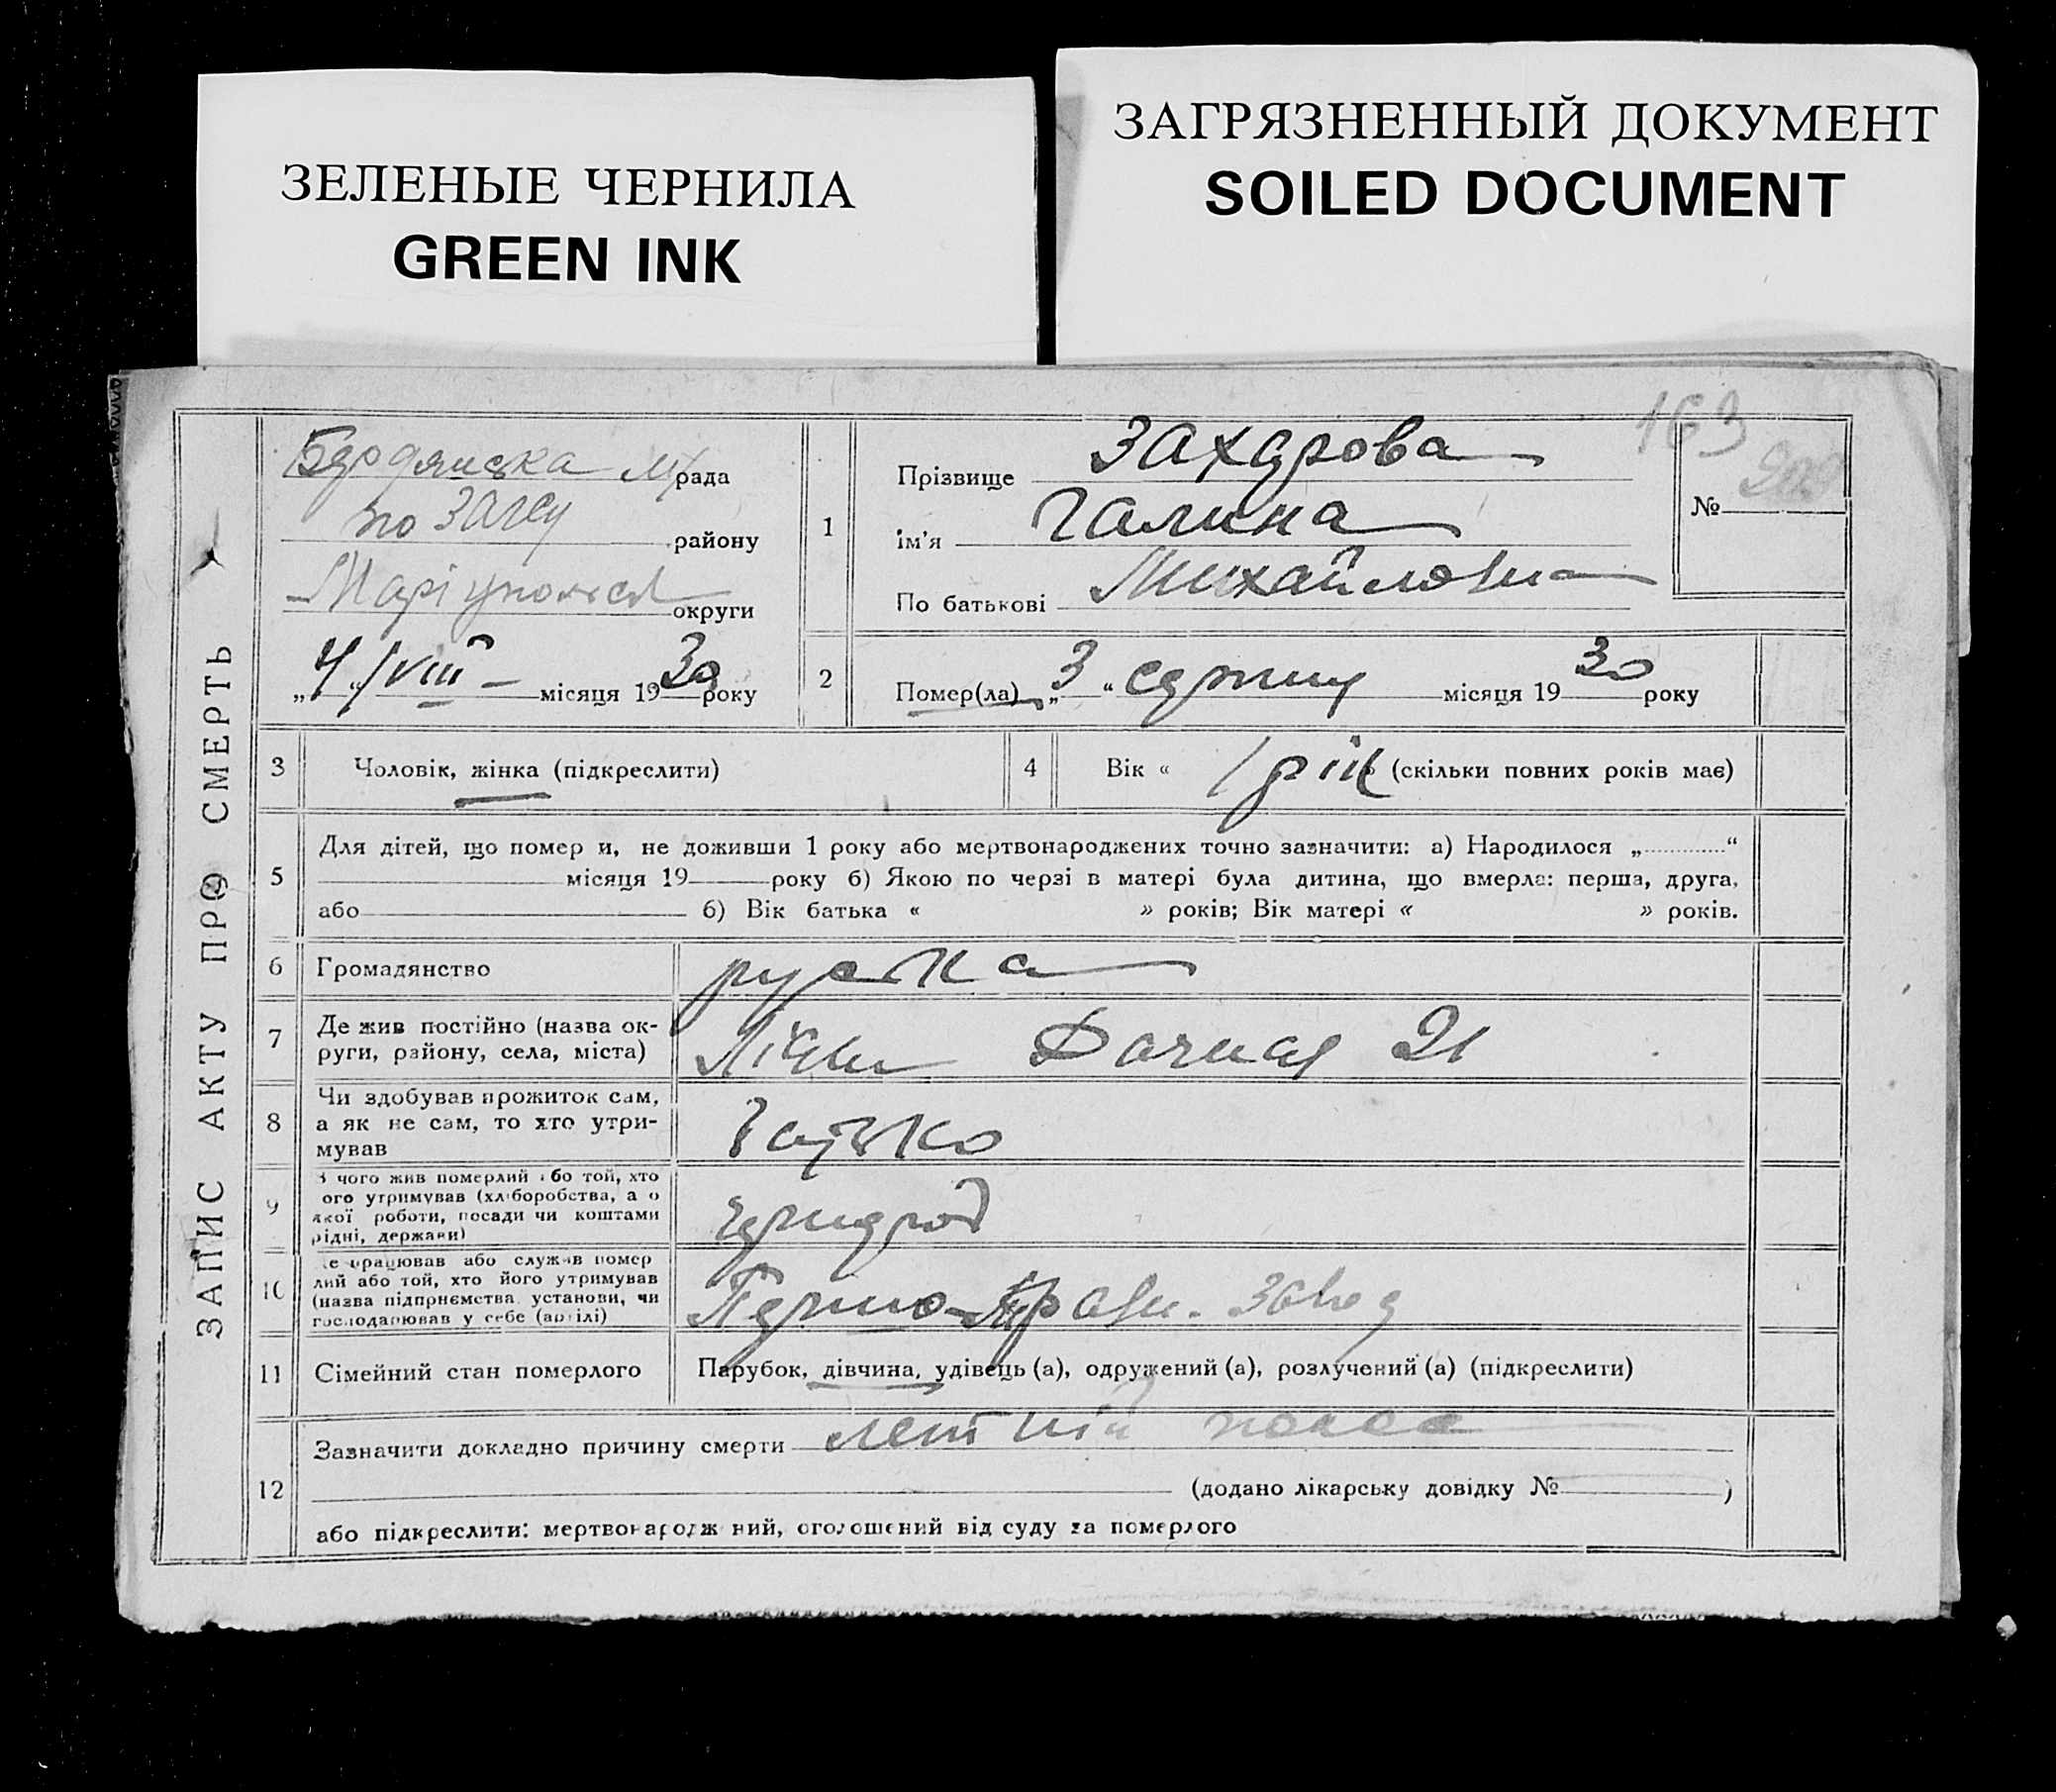 ЗЕЛЕНЫЕ ЧЕРНИЛА
GREEN INK
ЗАГРЯЗНЕННЫЙ ДОКУМЕНТ
SOILED DOCUMENT
163
ЗАПИС АКТУ ПРО СМЕРТЬ
Бердянська м/рада
по загсу району
округи
„4“/VIII – місяця 1930 року
1
Прізвище Захарова
Ім'я Галина
По батькові Михайловна
№
2
Помер(ла) „3“ серпня місяця 1930 року
3 Чоловік, жінка (підкреслити)
4 Вік « 1 рік (скільки повних років має)
5
Для дітей, що помер и, не доживши 1 року або мертвонароджених точно зазначити: а) Народилося „ “
місяця 19 року б) Якою по черзі в матері була дитина, що вмерла: перша, друга,
або б) Вік батька « » років; Вік матері « » років.
6 Громадянство руська
7
Де жив постійно (назва ок-
руги, району, села, міста)
Дачная 21
8
Чи здобував прожиток сам,
а як не сам, то хто утри-
мував
батько
9
З чого жив померлий або той, хто
ого утримував (хліборобства, а о
якої роботи, посади чи коштами
рідні, держави)
10
е працював або служив помер
лий або той, хто його утримував
(назва підприємства, установи, чи
господарював у себе (артілі)
завод
11 Сімейний стан померлого Парубок, дівчина, удівець (а), одружений (а), розлучений (а) (підкреслити)
12
Зазначити докладно причину смерти летній понос
(додано лікарську довідку № )
або підкреслити: мертвонародж ний, оголошений від суду за померлого